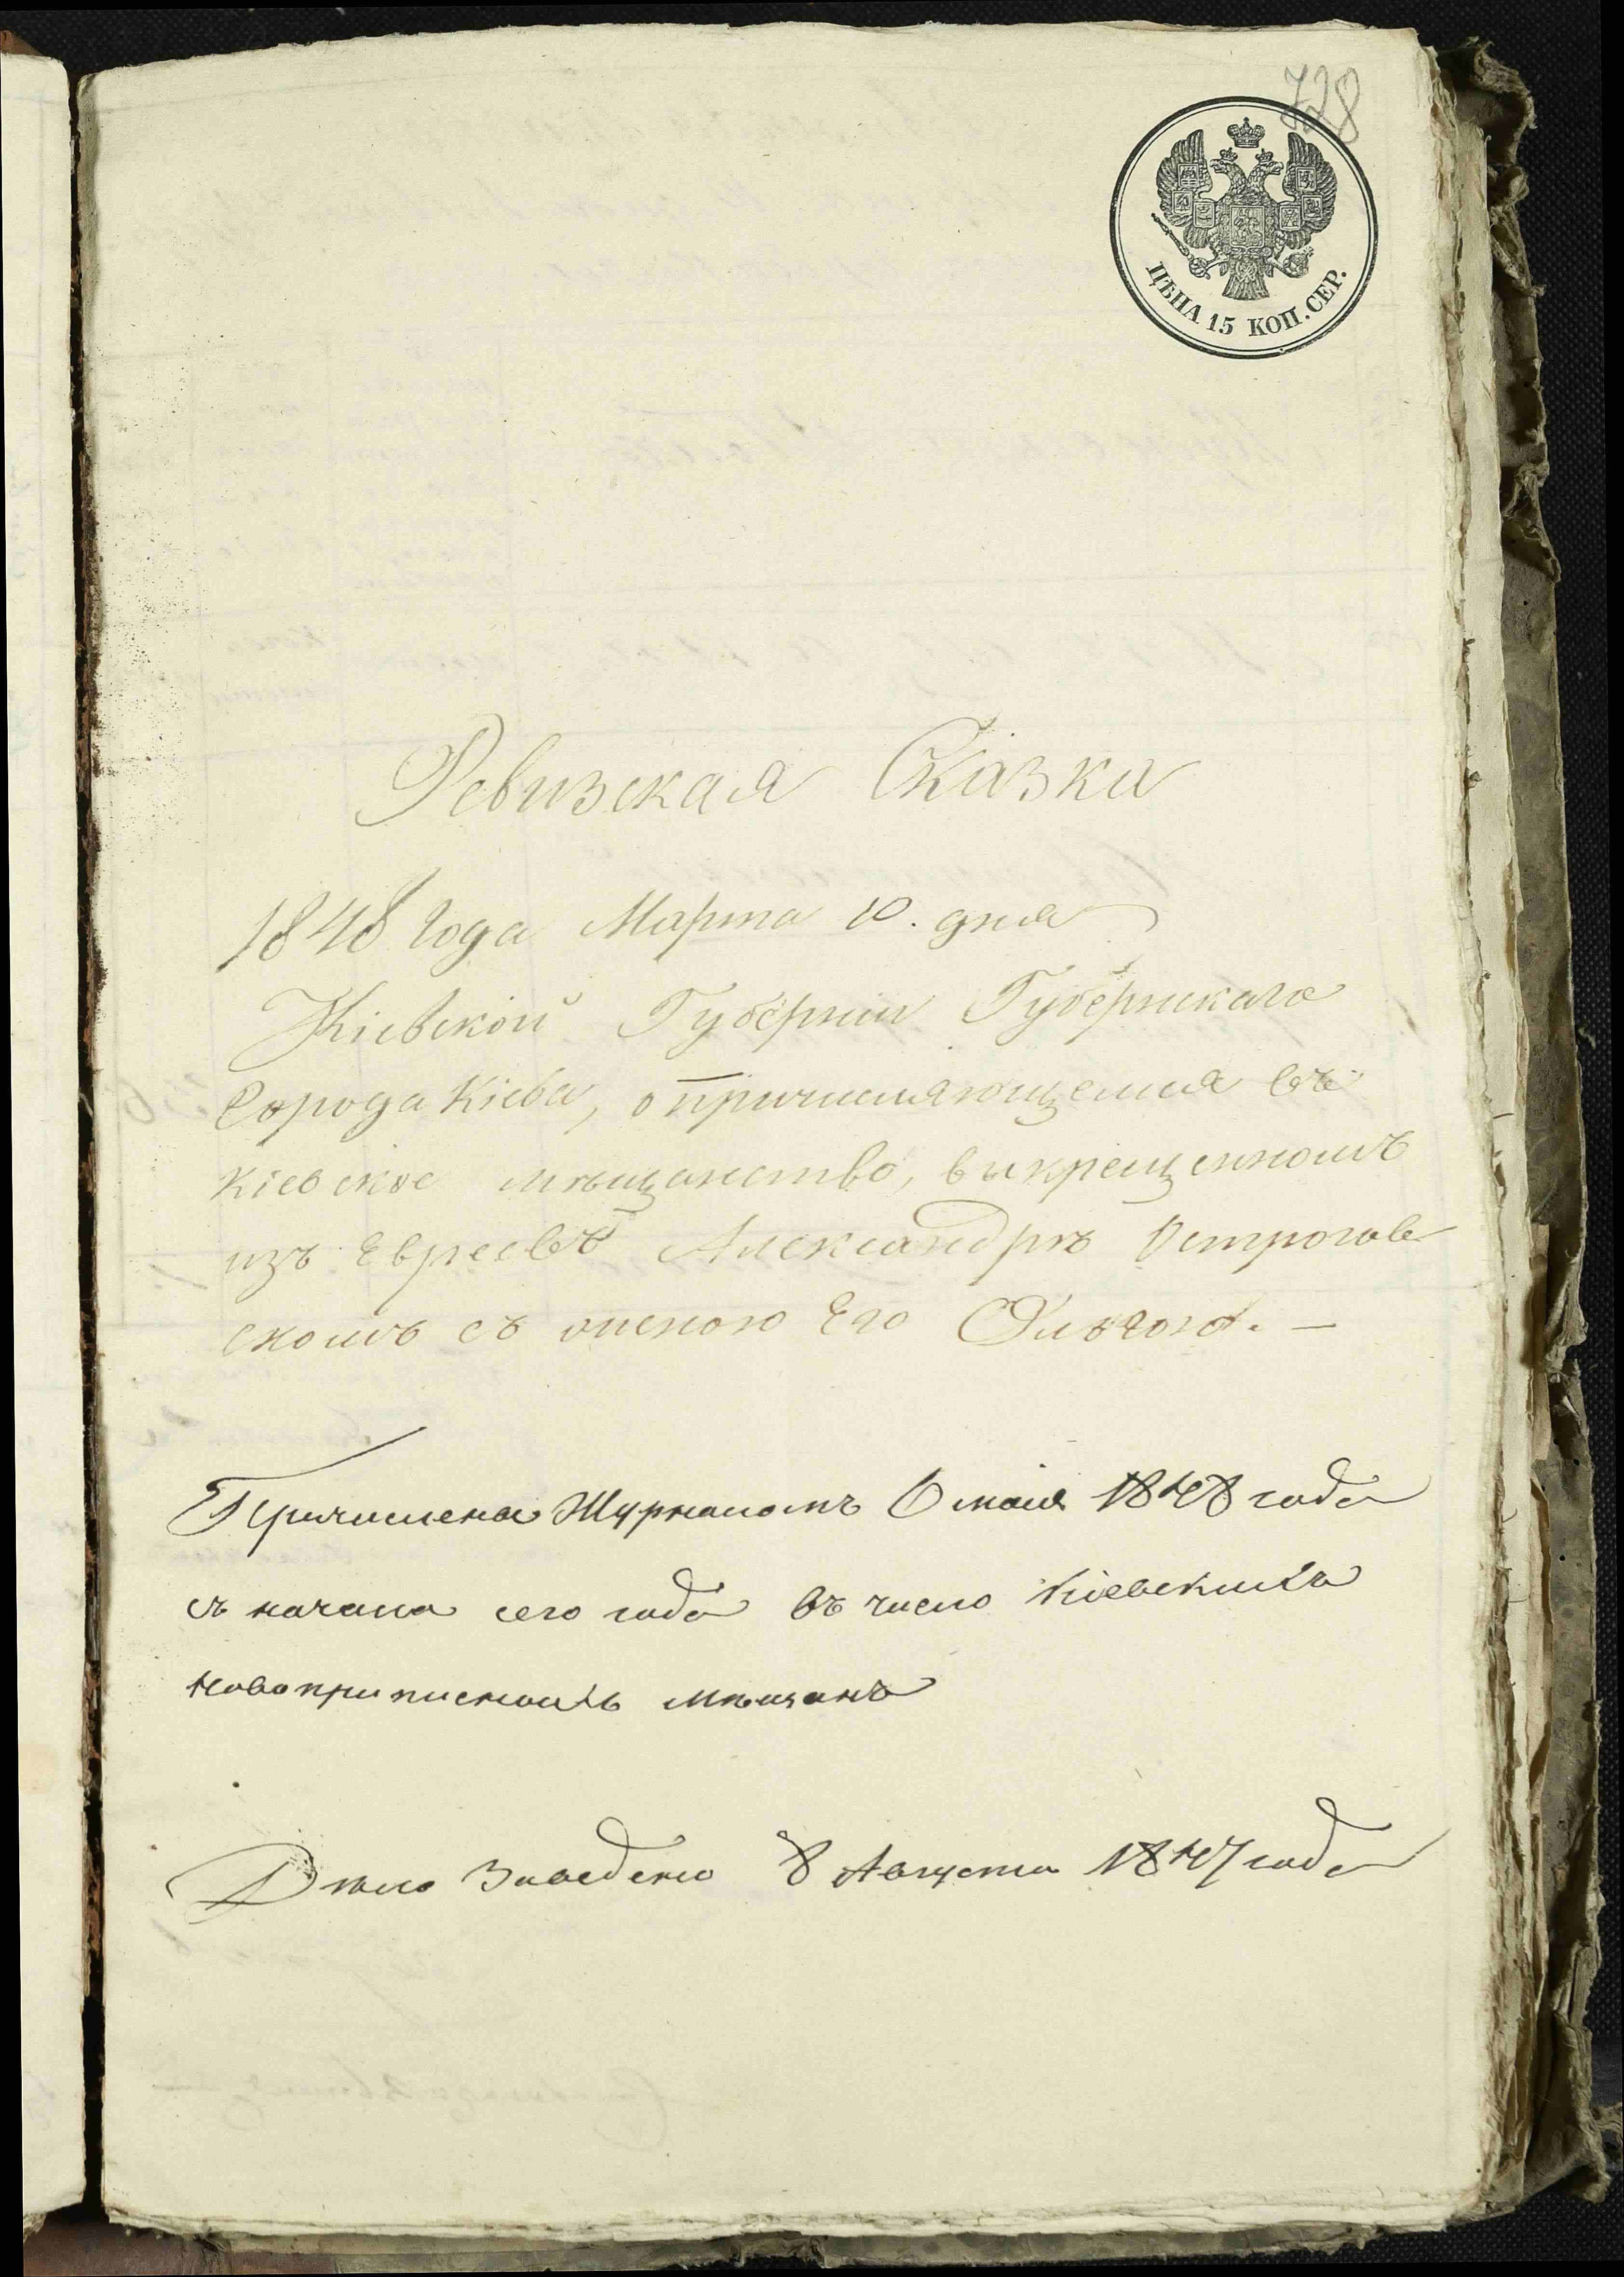 728
ЦѢНА 15 КОП. СЕР.
Ревизская Сказка
1848 Года Марта 10. дня
Кіевской Губерніи Губернскаго
Города Кіева, о причисляющемся въ
Кіевское мѣщанство, выкрещенномъ
изъ Евреевъ Александрѣ Острогов
скомъ съ женою Его Ольгою. —
Причислена Журналомъ 6 маія 1848 года
съ начала сего года въ число Кіевскихъ
новоприписныхъ мѣщанъ
Дѣло Заведено 8 Августа 1847 года